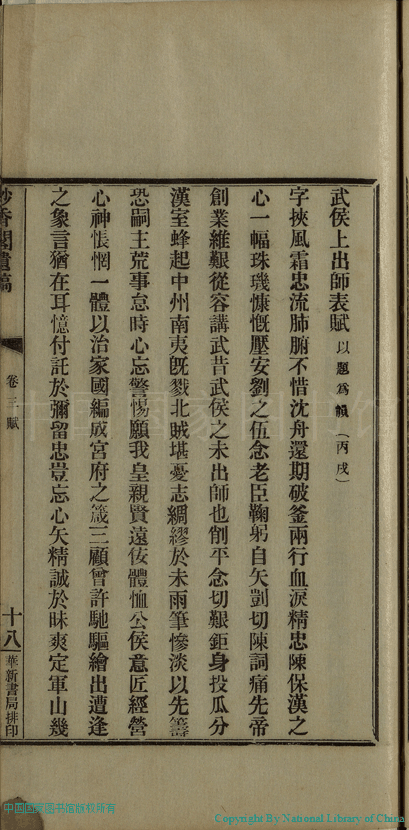 武侯上出師表賦 以題為韻 (丙戌)
字挾風霜忠流肺腑不惜沈舟還期破釜兩行血淚精忠陳保漢之
心一幅珠璣慷慨壓安劉之伍念老臣鞠躬自矢剴切陳詞痛先帝
創業維艱從容講武昔武侯之未出師也削平念切艱鉅身投瓜分
漢室蜂起中州南夷旣戮北賊堪憂志綢繆於未雨筆慘淡以先籌
恐嗣主荒事怠時心忘警惕願我皇親賢遠佞體恤公侯意匠經營
心神悵惘一體以治家國編成宮府之箴三顧曾許馳驅繪出遭逢
之象言猶在耳憶付託於彌留忠豈忘心矢精誠於昧爽定軍山幾
妙香閣遺稿
卷三賦
十八
華新書局排印
中国国家图书馆版权所有
Copyright By National Library of China